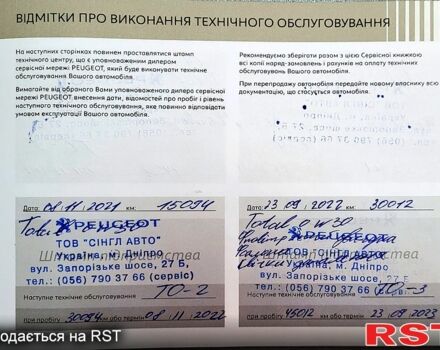 ВІДМІТКИ ПРО ВИКОНАННЯ ТЕХНІЧНОГО ОБСЛУГОВУВАННЯ
На наступних сторінках повинен проставлятися штамп
технічного центру, що є уповноваженим дилером
сервісної мережі PEUGEOT, який буде виконувати технічне
обслуговування Вошого автомобіля.
Вимагайте від обраного Вами уповноваженого дилера сервісної
мережі PEUGEOT внесення дати, відомостей про пробіг і рівень
наступного технічного обслуговування, яке повинно відповідати
умовам експлуатації Вашого автомобіля.
Рекомендуємо зберігати разом з цією Сервісної книжкою
всі копії наряд-замовлень і рахунків на оплату технічних
обслуговувань Вошого автомобіля.
При перепродажу автомобіля передайте новому власнику всю
документацію, що стосується автомобіля.
Дата: 08 11 2021 км: 15094
Total 0W30
PEUGEOT
ТОВ "СІНГЛ АВТО"
Україна, м. Дніпро
вул. Запорізьке шосе, 27 Б,
тел.: (056) 790 37 66 (сервіс)
Наступне технічне обслуговування ТО-2
при пробігу 30094 км або термін 08 11 2022
Дата: 23 09 2022 км: 30012
Total 0W30
PEUGEOT
ТОВ "СІНГЛ АВТО"
Україна, м. Дніпро
вул. Запорізьке шосе, 27 Б,
тел.: (056) 790 37 66 (сервіс)
Наступне технічне обслуговування ТО-3
при пробігу 45012 км або термін 23 09 2023
одається на RST
RST